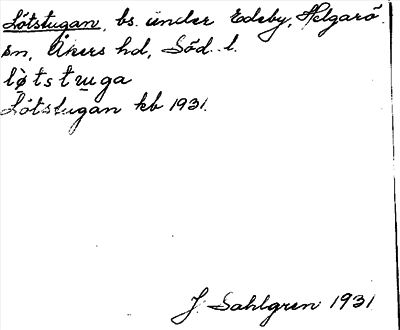 Lötstugan, bs. under Edeby, Helgarö
sn, Åkers hd, Söd. l.
lø̀tstɯga
Lötstugan kb 1931.
J. Sahlgren 1931